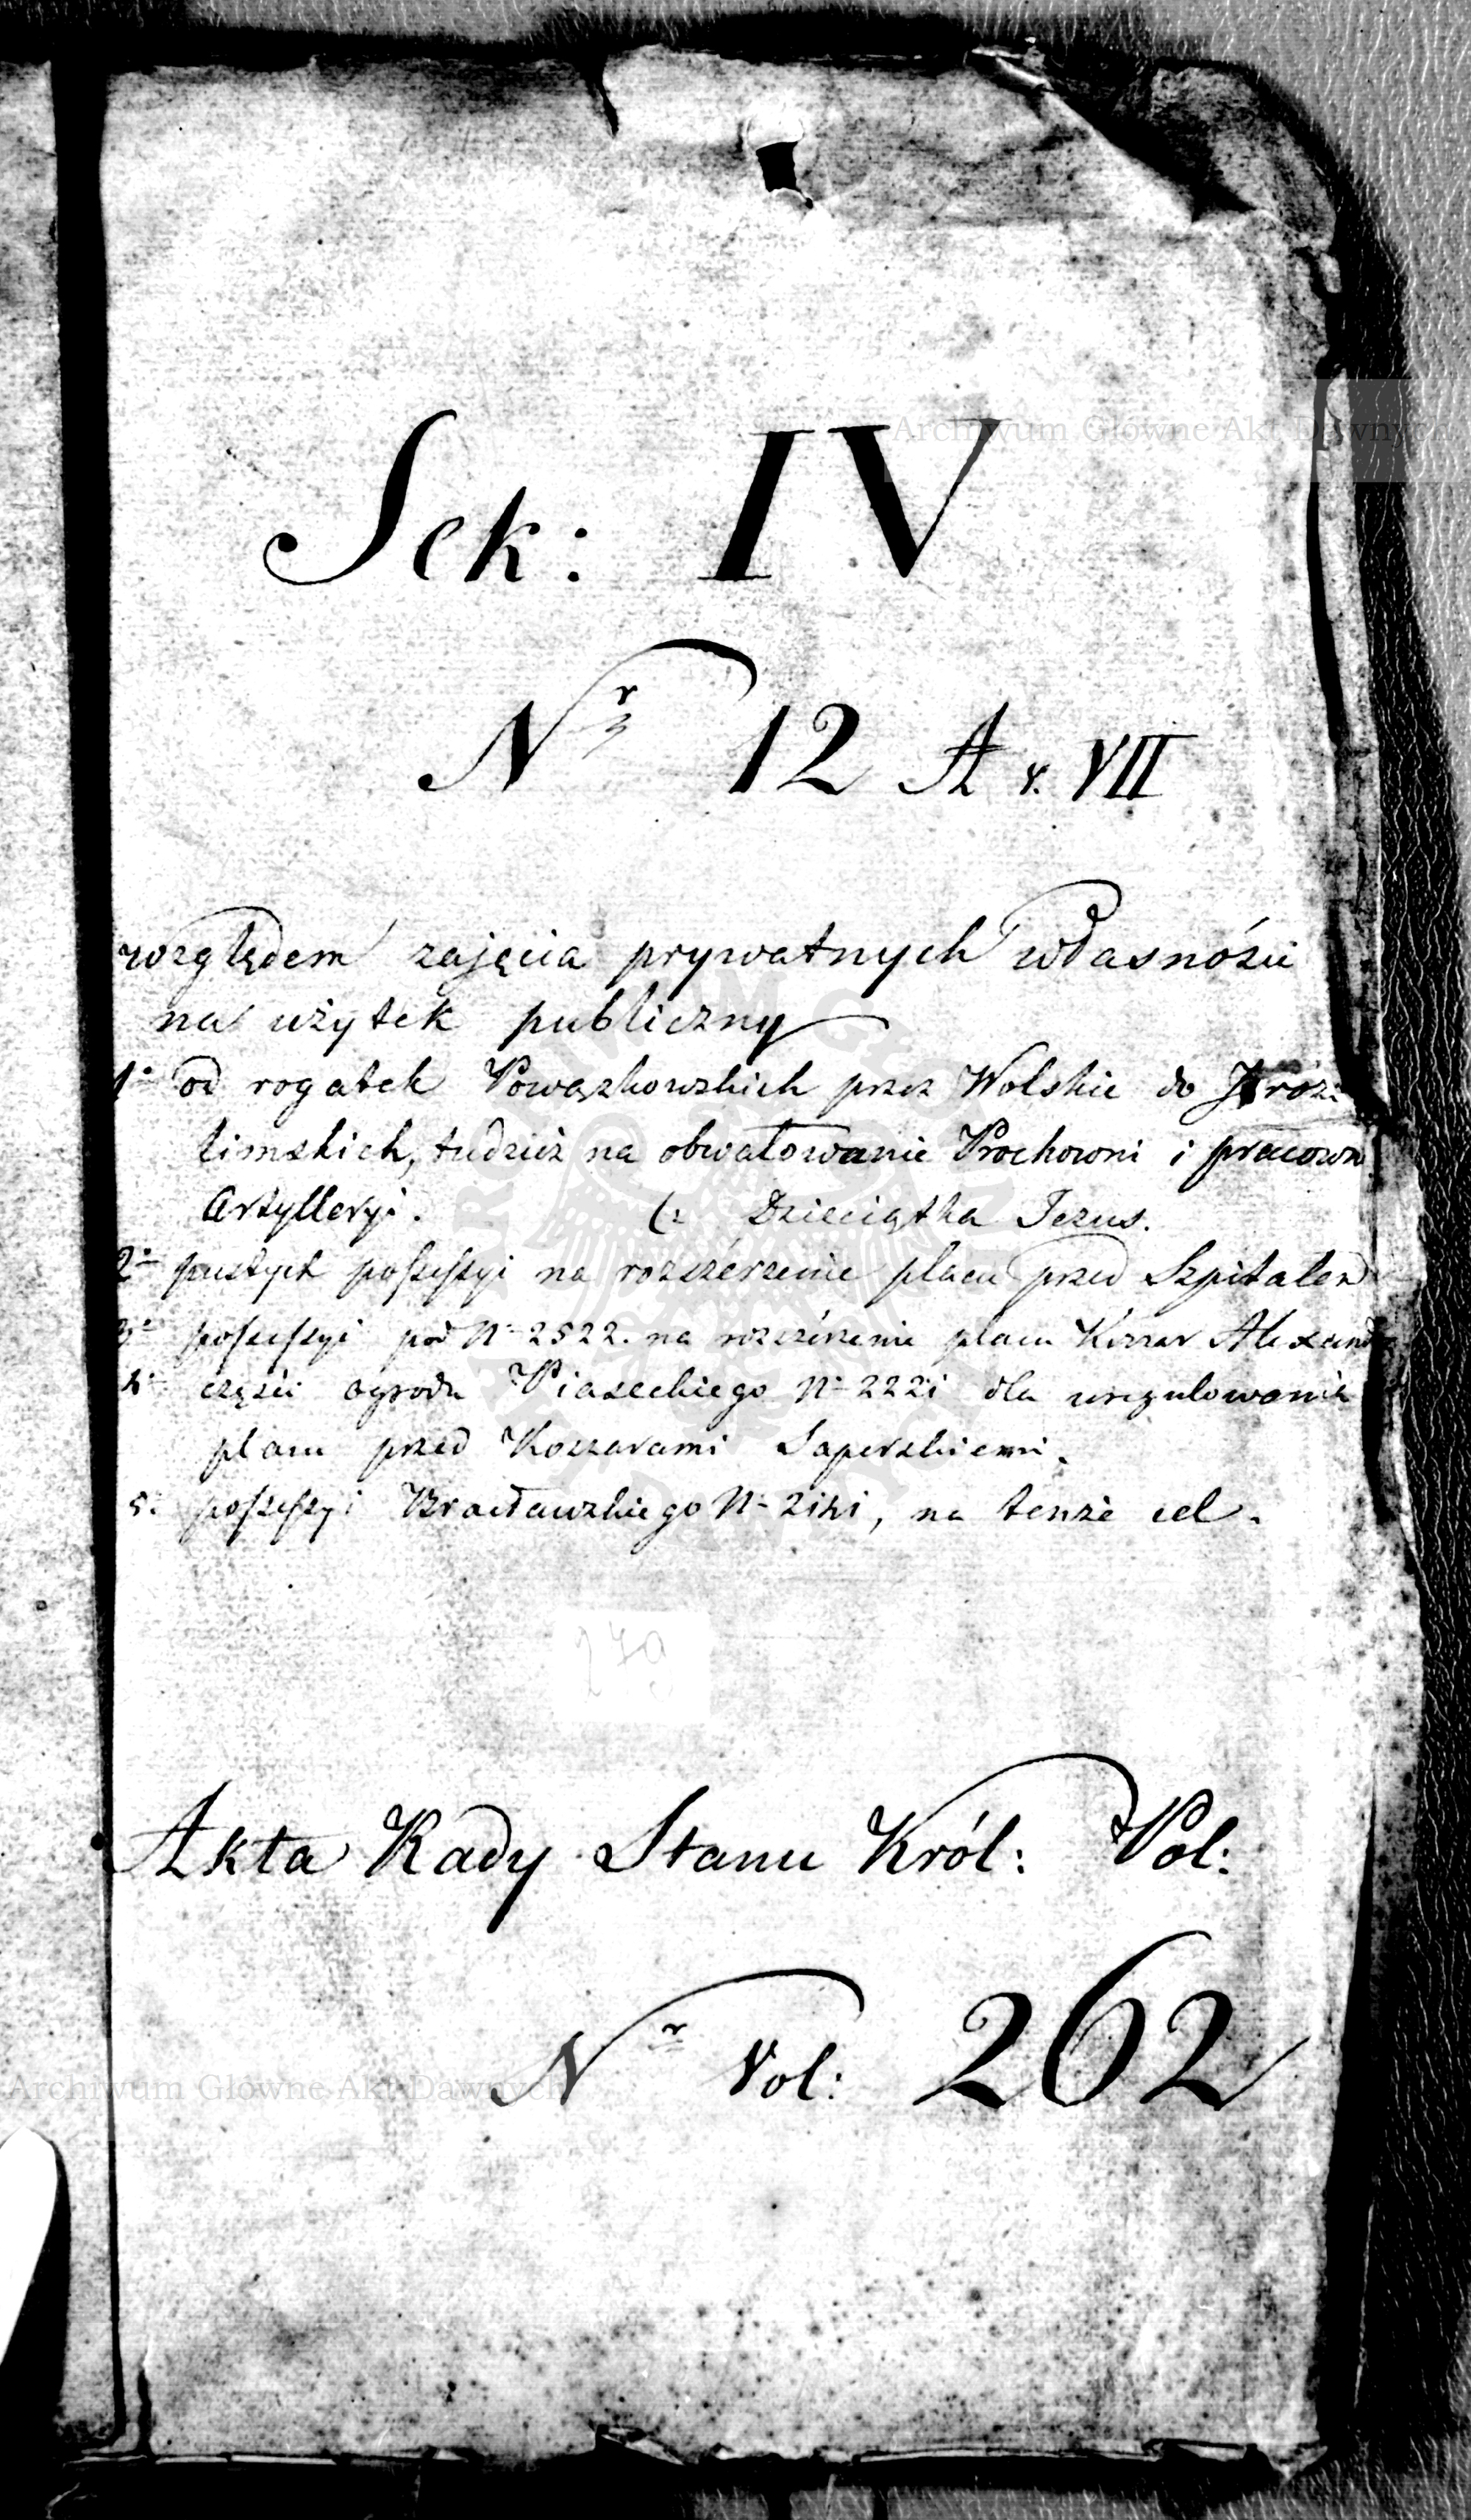 Archiwum Główne Akt Dawnych
Sek: IV
Nr 12 A v. VII
względem zajęcia prywatnych własnośći
na użytek publiczny
1° od rogatek Powązkowskich przez Wolskie do Jeroz:
limskich, tudzież na obwałowanie Prochowni i pracown
Artylleryi. (: Dzieciątka Jezus.
2° pustych possessyi na rozszérzenie placu przed Szpitalem
3° possessyi pod N° 2522. na rozszérzenie placu Koszar Alexand
4° części ogrodu Piaseckiego N° 2221 dla uregulowania
placu przed Koszarami Saperskiemi.
5° possessyi Bracławskiego N° 2141, na tenże cel.
279
Akta Rady Stanu Król: Pol:
Nr Vol: 262
Archiwum Główne Akt Dawnych